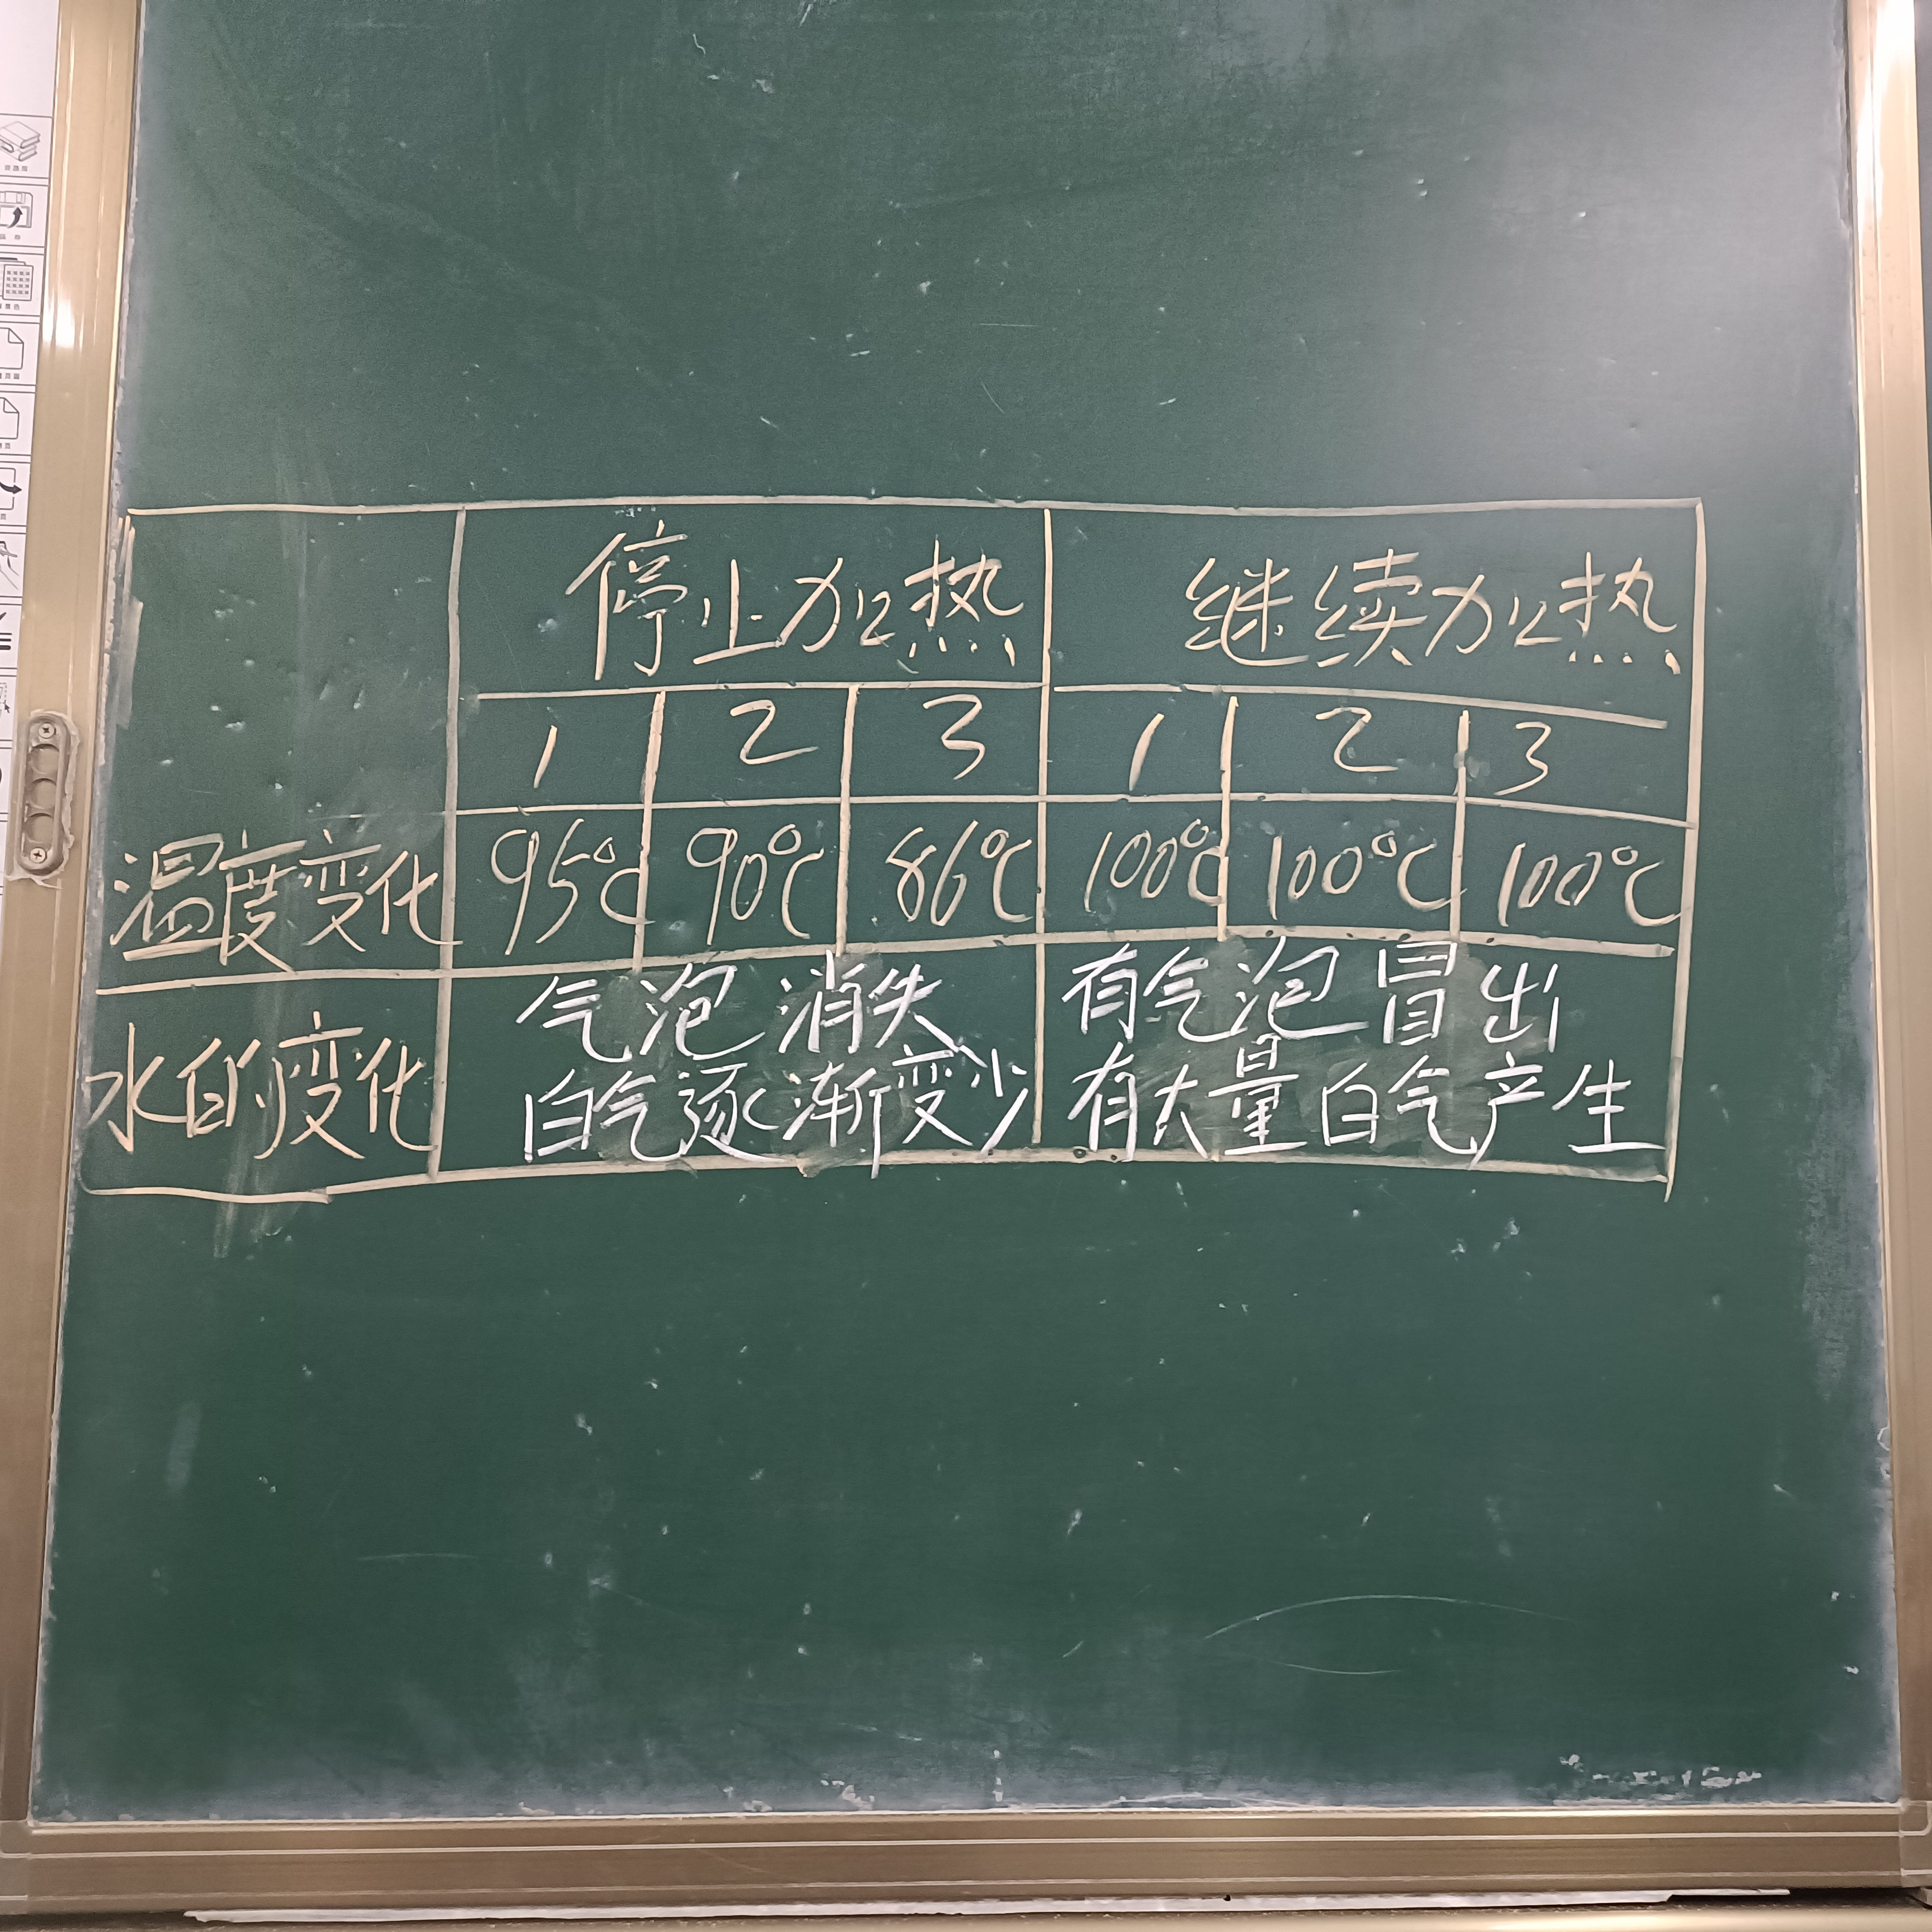 停止加热 继续加热
1 2 3 1 2 3
温度变化 95℃ 90℃ 86℃ 100℃ 100℃ 100℃
水的变化
气泡消失
白气逐渐变少
有气泡冒出
有大量白气产生